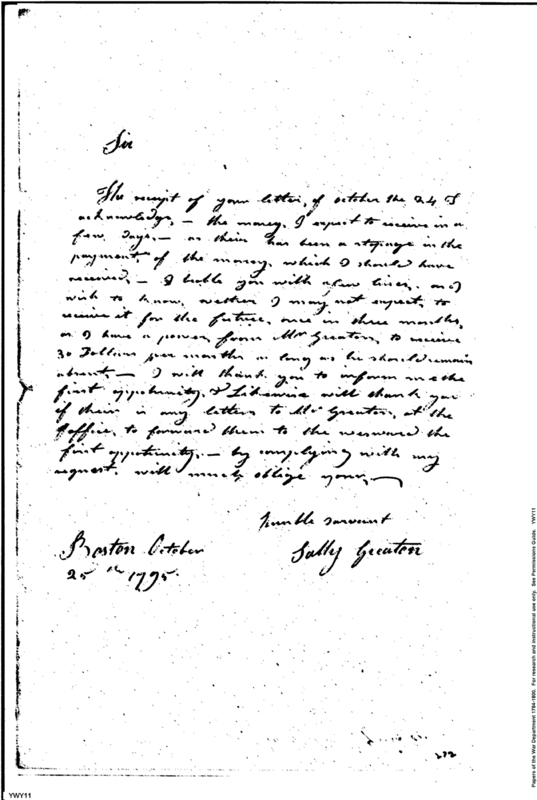 Sir
The receipt of your letter, of october the 24 I
acknowledge, — the money, I expect to receive in a
few days, — as their has been a stopage in the
payment of the money, which I should have
received, — I troble you with a few lines, as I
wish to know, wether I may not expect, to
receive it for the future, once in three months,
as I have a power, from Mr Greaton, to receive
30 Dollars per months as long as he should remain
absent, — I will thank you to inform me the
first oppertunity, & Likewise will thank you
if their is any letters to Mr Greaton, at the
office, to forward them to the westward the
first oppertunity, — by complying with my
request, will much oblige your, —
humble sarvant
Sally Greaton
Boston October
25th 1795.
272
YWY11
Papers of the War Department 1784-1800. For research and instructional use only. See Permissions Guide. YWY11